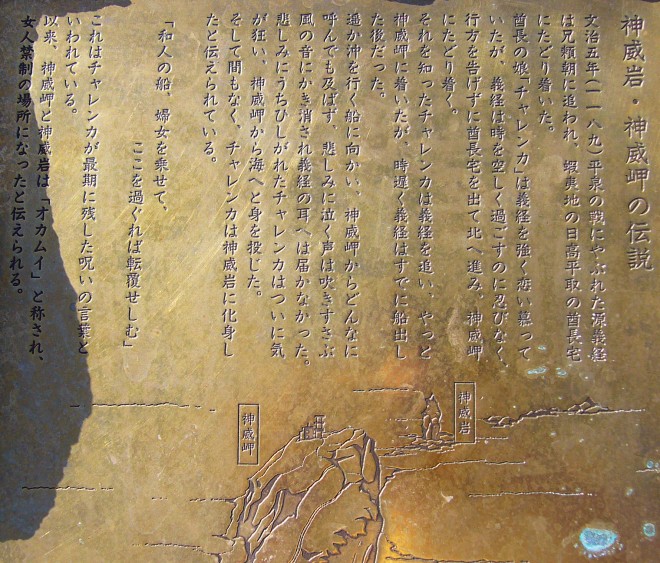 神威岩・神威岬の伝説
文治五年(一一八九)平泉の戦にやぶれた源義経
は兄頼朝に追われ、蝦夷地の日高平取の酋長宅
にたどり着いた。
酋長の娘「チャレンカ」は義経を強く恋い慕って
いたが、義経は時を空しく過ごすのに忍びなく、
行方を告げずに酋長宅を出て北へ進み、神威岬
にたどり着く。
それを知ったチャレンカは義経を追い、やっと
神威岬に着いたが、時遅く義経はすでに船出し
た後だった。
遥か沖を行く船に向かい、神威岬からどんなに
呼んでも及ばず、悲しみに泣く声は吹きすさぶ
風の音にかき消され義経の耳へは届かなかった。
悲しみにうちひしがれたチャレンカはついに気
が狂い、神威岬から海へと身を投じた。
そして間もなく、チャレンカは神威岩に化身し
たと伝えられている。
「和人の船、婦女を乗せて、
ここを過ぐれば転覆せしむ」
これはチャレンカが最期に残した呪いの言葉と
いわれている。
以来、神威岬と神威岩は「オカムイ」と称され、
女人禁制の場所になったと伝えられる。
神威岩
神威岬